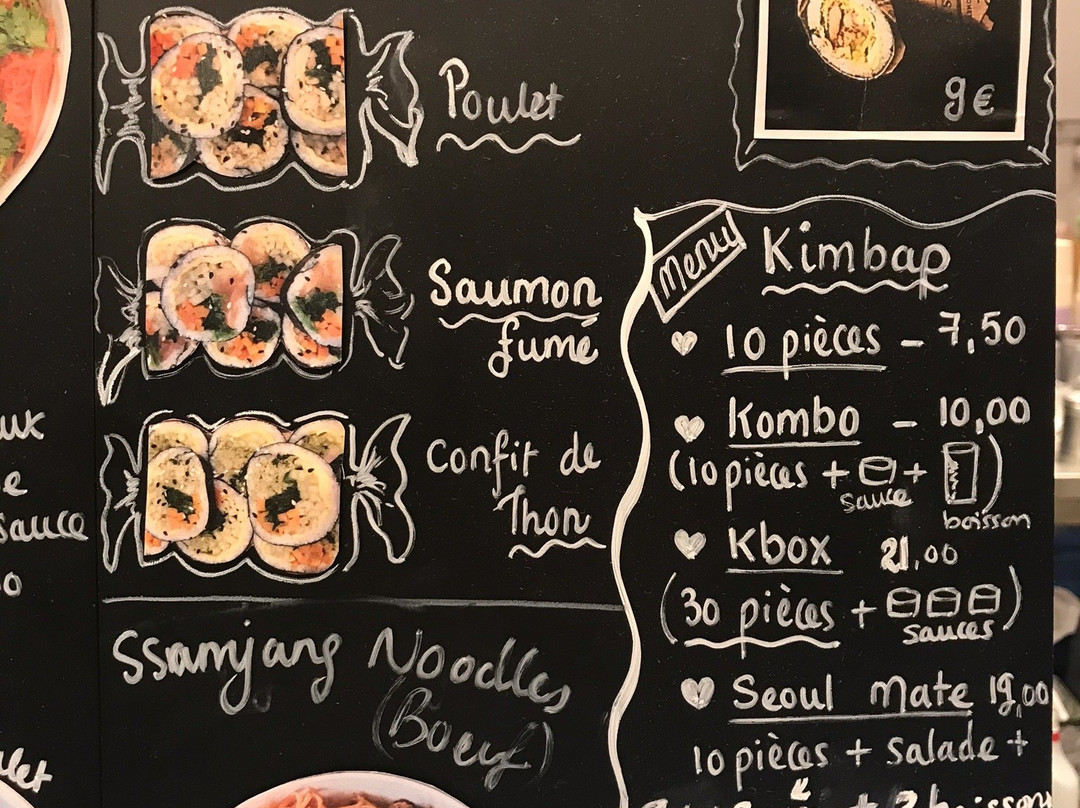 Poulet
Saumon
fumé
Confit de
Thon
Ssamjang Noodles
(Boeuf)
9€
Menu
Kimbap
10 pièces - 7,50
Kombo - 10,00
(10 pièces + +
sauce
boisson
Kbox 21,00
(30 pièces + )
sauces
Seoul Mate 19,00
10 pièces + Salade +
boisson
sauce